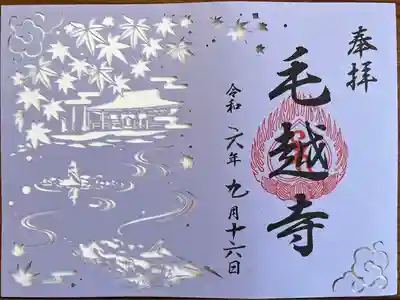 奉拝
毛越寺
令和六年九月十六日